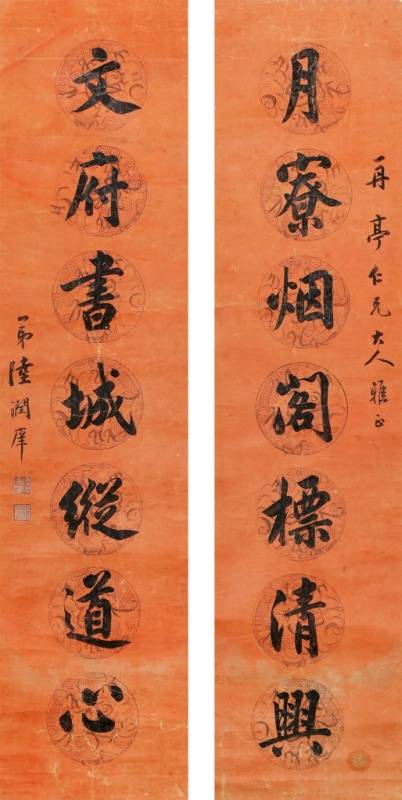 再亭仁兄大人雅正
月寮烟阁標清興
文府書城縱道心
弟陸潤庠